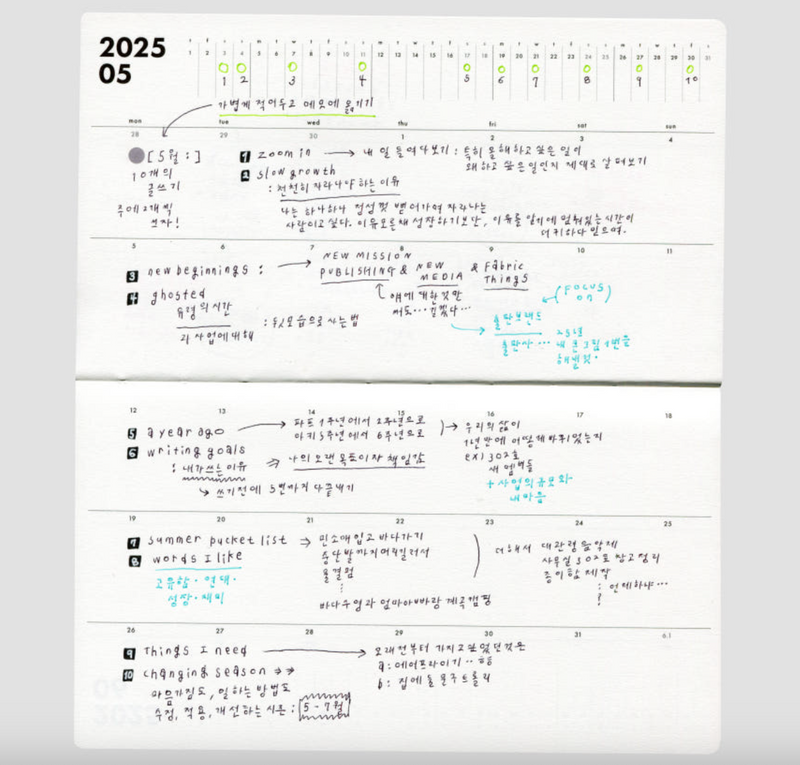 2025
05
1 2 3 4 5 6 7 8 9 10 11 12 13 14 15 16 17 18 19 20 21 22 23 24 25 26 27 28 29 30 31
1 2 3 4 5 6 7 8 9 10
가볍게 적어두고 메모에 옮기기
mon tue wed thu fri sat sun
28 29 30 1 2 3 4
[5월:]
10개의
글쓰기
주에 2개씩
쓰자!
1 zoom in → 내 일 들여다보기 : 특히 올해하고 싶은 일이
왜 하고 싶은 일인지 제대로 살펴보기
2 slow growth
: 천천히 자라나야 하는 이유
나는 하나하나 정성껏 뱉어가며 자라나는
사람이고 싶다. 이유모른채 성장하기보단, 이유를 알기에 멈춰있는 시간이
더 귀하다 믿으며.
5 6 7 8 9 10 11
3 new beginnings : → NEW MISSION
PUBLISHING & NEW MEDIA & Fabric Things
4 ghosted
유령의 시간
과 사업에 대해
: 뒷모습으로 사는법
얘에 대한것만
써도… 길겠다…
(FOCUS ON)
출판브랜드
출판사 … 25년
내 큰 그림 1번을
해낼것.
12 13 14 15 16 17 18
5 a year ago → 파프 1주년에서 2주년으로
아키 5주년에서 6주년으로
→ 우리의 삶이
1년만에 어떻게 바뀌었는지
ex) 302호
새 멤버들
+ 사업의 규모와
내마음
6 writing goals ⇒ 나의 오랜 목표이자 책임감
: 내가 쓰는 이유
↳ 쓰기 전에 5번까지 다 끝내기
19 20 21 22 23 24 25
7 summer bucket list → 민소매입고 바다가기
중단발까지 머리길러서
올결펌
⋮
바다수영과 엄마아빠랑 계곡캠핑
더해서 대관령음악제
사무실 302호 창고정리
종이함 제작
: 언제하냐…
?
8 words I like
고유함 · 연대 ·
성장 · 재미
26 27 28 29 30 31 6.1
9 Things I need → 오래전부터 가지고 싶었던것은
a : 에어프라이기.. 하핳
b : 집에 둘 문구 트롤리
10 changing season →→
마음가짐도, 일하는 방법도
수정, 적용, 개선하는 시즌 : [5-7월]